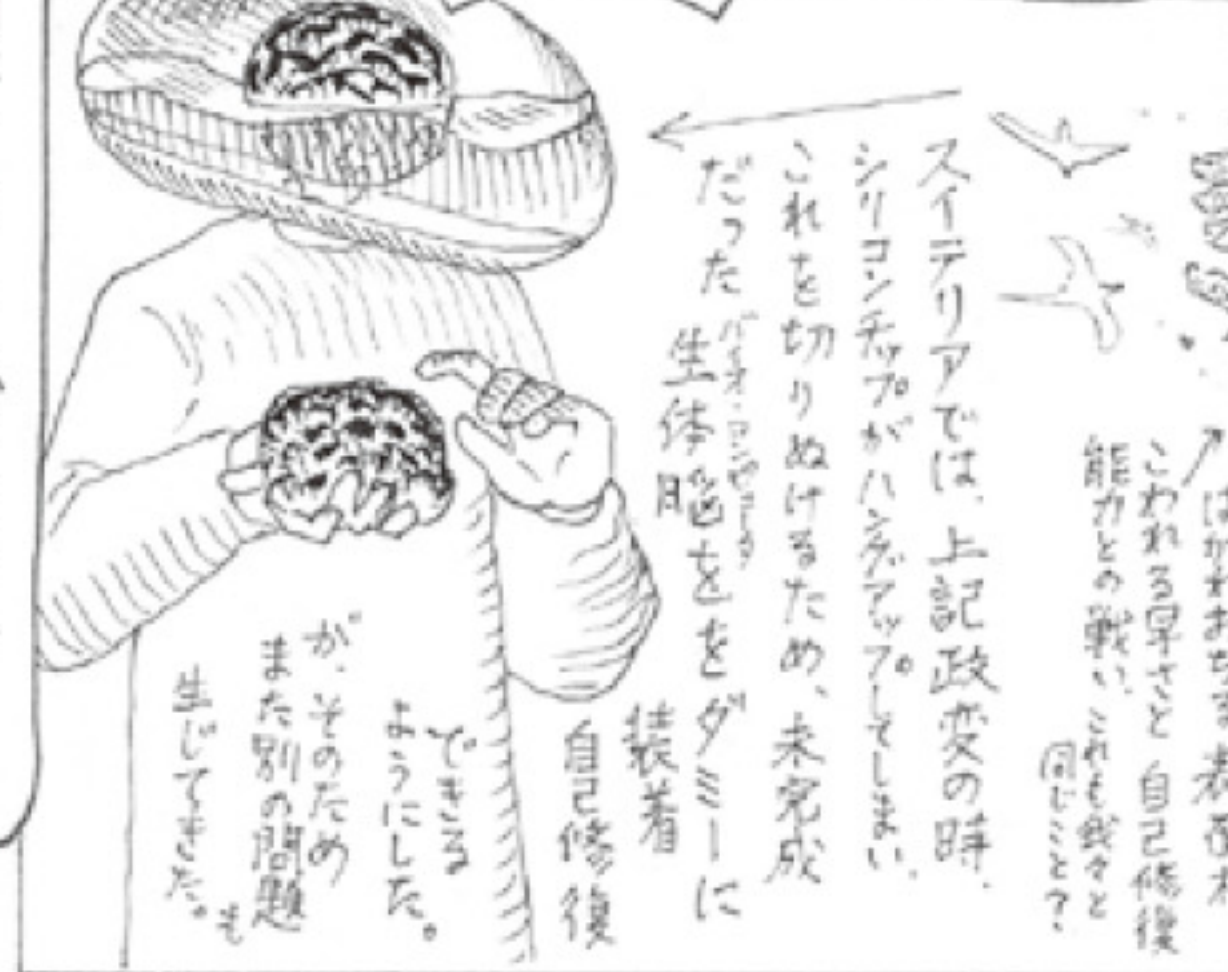 こわれる早さと 自己修復
能力との戦い、これも我々と
同じこと?
スイテリアでは、上記政変の時、
シリコンチップがハングアップしてしまい、
これを切りぬけるため、未完成
だった 生体脳ををダミーに
バイオ・コンピュータ
装着
自己修復
できる
ようにした。
が、そのため
また別の問題
も
生じてきた。